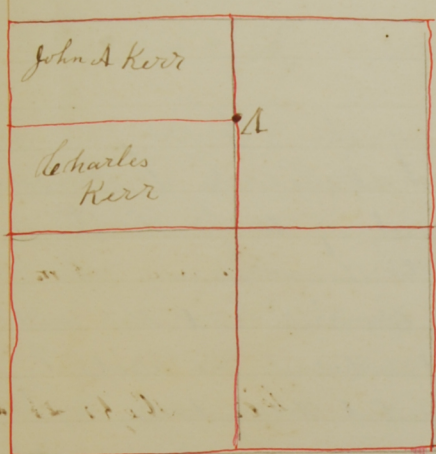 John A Kerr
A
Charles
Kerr